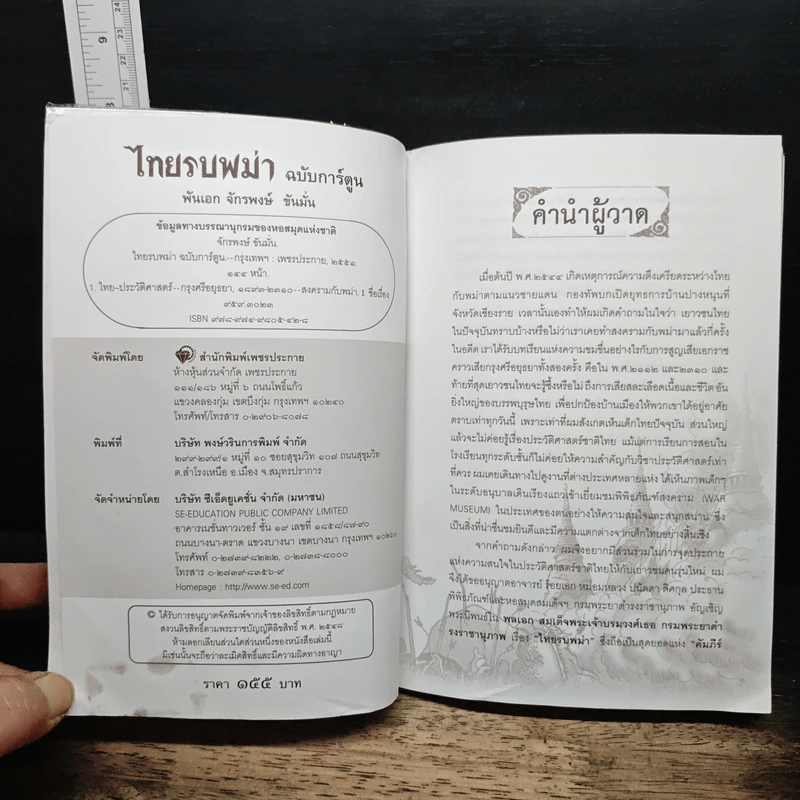 ไทยรบพม่า ฉบับการ์ตูน
พันเอก จักรพงษ์ ขันมั่น
ข้อมูลทางบรรณานุกรมของหอสมุดแห่งชาติ
จักรพงษ์ ขันมั่น.
ไทยรบพม่า ฉบับการ์ตูน.--กรุงเทพฯ : เพชรประกาย, ๒๕๕๑.
๑๔๔ หน้า.
1. ไทย--ประวัติศาสตร์--กรุงศรีอยุธยา, ๑๘๙๓-๒๓๑๐--สงครามกับพม่า. I. ชื่อเรื่อง
๙๕๙.๓๐๒๓
ISBN ๙๗๘-๙๗๔-๙๘๐๕-๔๒-๘
จัดพิมพ์โดย สำนักพิมพ์เพชรประกาย
ห้างหุ้นส่วนจำกัด เพชรประกาย
๑๑๑/๑๘๖ หมู่ที่ ๖ ถนนโพธิ์แก้ว
แขวงคลองกุ่ม เขตบึงกุ่ม กรุงเทพฯ ๑๐๒๔๐
โทรศัพท์/โทรสาร ๐-๒๙๐๖-๘๐๗๘
พิมพ์ที่ บริษัท พงษ์วรินการพิมพ์ จำกัด
๒๙๙-๒๙๙/๑ หมู่ที่ ๑๐ ซอยสุขุมวิท ๑๐๗ ถนนสุขุมวิท
ต.สำโรงเหนือ อ.เมือง จ.สมุทรปราการ
จัดจำหน่ายโดย บริษัท ซีเอ็ดยูเคชั่น จำกัด (มหาชน)
SE-EDUCATION PUBLIC COMPANY LIMITED
อาคารเนชั่นทาวเวอร์ ชั้น ๑๙ เลขที่ ๑๘๕๘/๘๗-๙๐
ถนนบางนา-ตราด แขวงบางนา เขตบางนา กรุงเทพฯ ๑๐๒๖๐
โทรศัพท์ ๐-๒๗๓๙-๘๒๒๒, ๐-๒๗๓๙-๘๐๐๐
โทรสาร ๐-๒๗๓๙-๘๓๕๖-๙
Homepage : http://www.se-ed.com
© ได้รับการอนุญาตจัดพิมพ์จากเจ้าของลิขสิทธิ์ตามกฎหมาย
สงวนลิขสิทธิ์ตามพระราชบัญญัติลิขสิทธิ์ พ.ศ. ๒๕๔๘
ห้ามลอกเลียนส่วนใดส่วนหนึ่งของหนังสือเล่มนี้
มิเช่นนั้นจะถือว่าละเมิดสิทธิ์และมีความผิดทางอาญา
ราคา ๑๕๕ บาท
คำนำผู้วาด
เมื่อต้นปี พ.ศ.๒๕๔๔ เกิดเหตุการณ์ความตึงเครียดระหว่างไทย
กับพม่าตามแนวชายแดน กองทัพบกเปิดยุทธการบ้านปางหนุนที่
จังหวัดเชียงราย เวลานั้นเองทำให้ผมเกิดคำถามในใจว่า เยาวชนไทย
ในปัจจุบันทราบบ้างหรือไม่ว่าเราเคยทำสงครามกับพม่ามาแล้วกี่ครั้ง
ในอดีต เราได้รับบทเรียนแห่งความขมขื่นอย่างไรกับการสูญเสียเอกราช
คราวเสียกรุงศรีอยุธยาทั้งสองครั้ง คือใน พ.ศ.๒๑๑๒ และ๒๓๑๐ และ
ท้ายที่สุดเยาวชนไทย จะรู้ซึ้งหรือไม่ ถึงการเสียสละเลือดเนื้อและชีวิต อัน
ยิ่งใหญ่ของบรรพบุรุษไทย เพื่อปกป้องบ้านเมืองให้พวกเขาได้อยู่อาศัย
ตราบเท่าทุกวันนี้ เพราะเท่าที่ผมสังเกตเห็นเด็กไทยปัจจุบัน ส่วนใหญ่
แล้วจะไม่ค่อยรู้เรื่องประวัติศาสตร์ชาติไทย แม้แต่การเรียนการสอนใน
โรงเรียนทุกระดับชั้นก็ไม่ค่อยให้ความสำคัญกับวิชาประวัติศาสตร์เท่า
ที่ควร ผมเคยเดินทางไปดูงานที่ต่างประเทศหลายแห่ง ได้เห็นภาพเด็กๆ
ในระดับอนุบาลเดินเรียงแถวเข้าเยี่ยมชมพิพิธภัณฑ์สงคราม (WAR
MUSEUM) ในประเทศของตนอย่างให้ความสนใจและสนุกสนาน ซึ่ง
เป็นสิ่งที่น่าชื่นชมยินดีและมีความแตกต่างจากเด็กไทยอย่างสิ้นเชิง
จากคำถามดังกล่าว ผมจึงอยากมีส่วนร่วมในการจุดประกาย
แห่งความสนใจในประวัติศาสตร์ชาติไทยให้กับเยาวชนคนรุ่นใหม่ ผม
จึงได้ขออนุญาตอาจารย์ ร้อยเอก หม่อมหลวง ปนัดดา ดิศกุล ประธาน
พิพิธภัณฑ์และหอสมุดสมเด็จฯ กรมพระยาดำรงราชานุภาพ อัญเชิญ
พระนิพนธ์ใน พลเอก สมเด็จพระเจ้าบรมวงศ์เธอ กรมพระยาดำ
รงราชานุภาพ เรื่อง "ไทยรบพม่า" ซึ่งถือเป็นสุดยอดแห่ง "คัมภีร์
9
8
24
23
22
21